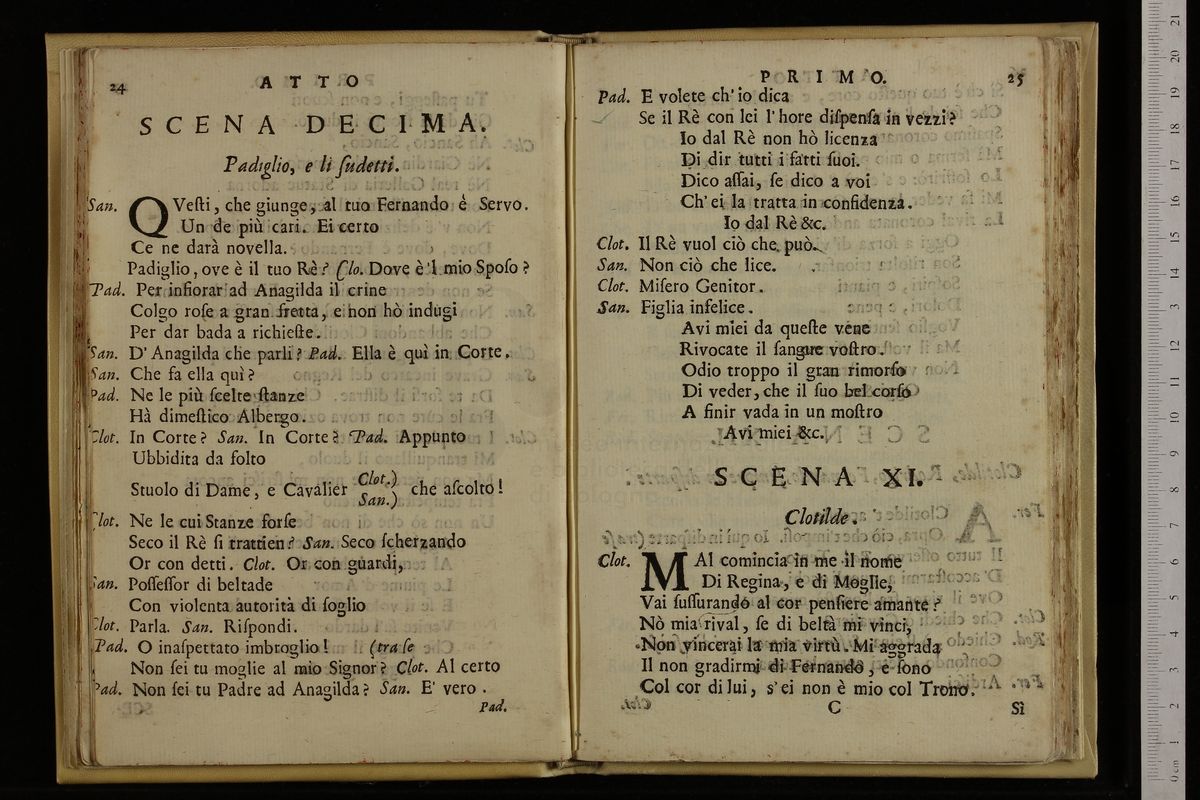 24
ATTO
SCENA DECIMA.
Padiglio, e li ſudetti.
San. QVeſti, che giunge, al tuo Fernando è Servo.
Un de più cari. Ei certo
Ce ne darà novella.
Padiglio, ove è il tuo Rè? Clo. Dove è'l mio Spoſo?
Pad. Per infiorar ad Anagilda il crine
Colgo roſe a gran fretta, e non hò indugi
Per dar bada a richieſte.
San. D'Anagilda che parli? Pad. Ella è quì in Corte.
San. Che fa ella quì?
Pad. Ne le più ſcelte ſtanze
Hà dimeſtico Albergo.
Clot. In Corte? San. In Corte? Pad. Appunto
Ubbidita da folto
Stuolo di Dame, e Cavalier Clot.) San.) che aſcolto!
Clot. Ne le cui Stanze forſe
Seco il Rè ſi trattien? San. Seco ſcherzando
Or con detti. Clot. Or con guardi,
San. Poſſeſſor di beltade
Con violenta autorità di ſoglio
Clot. Parla. San. Riſpondi.
Pad. O inaſpettato imbroglio! (tra ſe
Non ſei tu moglie al mio Signor? Clot. Al certo
Pad. Non ſei tu Padre ad Anagilda? San. E' vero.
Pad.
PRIMO.
25
Pad. E volete ch'io dica
Se il Rè con lei l'hore diſpenſa in vezzi?
Io dal Rè non hò licenza
Di dir tutti i fatti ſuoi.
Dico aſſai, ſe dico a voi
Ch'ei la tratta in confidenza.
Io dal Rè &c.
Clot. Il Rè vuol ciò che può.
San. Non ciò che lice.
Clot. Miſero Genitor.
San. Figlia infelice.
Avi miei da queſte vene
Rivocate il ſangue voſtro.
Odio troppo il gran rimorſo
Di veder, che il ſuo bel corſo
A finir vada in un moſtro
Avi miei &c.
SCENA XI.
Clotilde.
Clot. MAl comincia in me il nome
Di Regina, e di Moglie,
Vai ſuſſurando al cor penſiere amante?
Nò mia rival, ſe di beltà mi vinci,
Non vincerai la mia virtù. Mi aggrada
Il non gradirmi di Fernando, e ſono
Col cor di lui, s'ei non è mio col Trono.
C
Sì